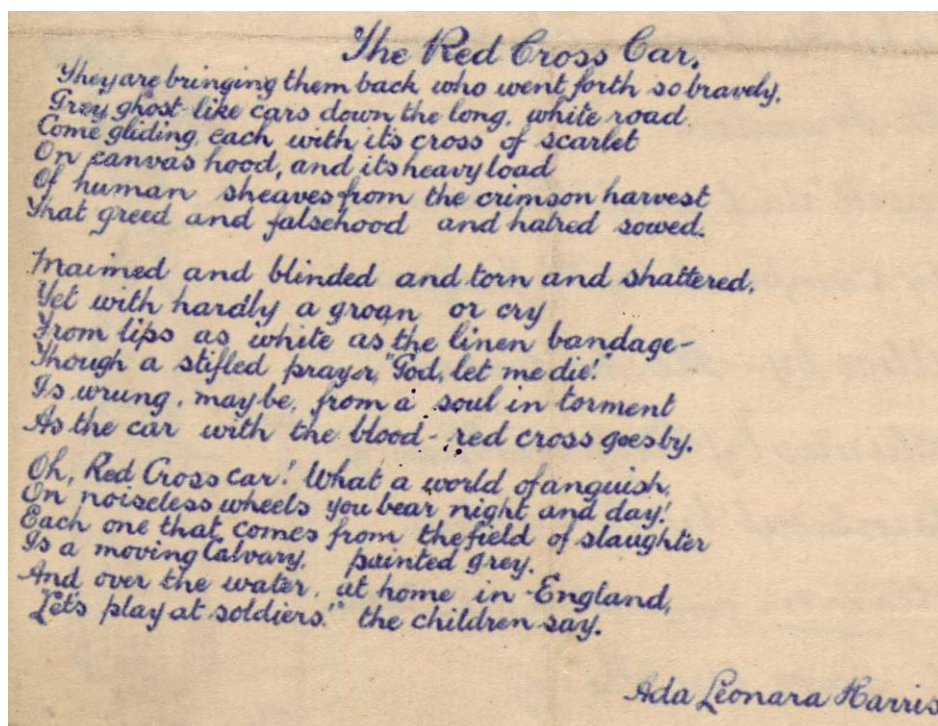 The Red Cross Car.
They are bringing them back who went forth so bravely.
Grey, ghost-like cars down the long, white road
Come gliding, each with its cross of scarlet
On canvas hood, and its heavy load
Of human sheaves from the crimson harvest
That greed and falsehood and hatred sowed.
Maimed and blinded and torn and shattered,
Yet with hardly a groan or cry
From lips as white as the linen bandage-
Though a stifled prayer, "God, let me die!"
Is wrung, maybe, from a soul in torment
As the car with the blood-red cross goes by.
Oh, Red Cross car! What a world of anguish
On noiseless wheels you bear night and day!
Each one that comes from the field of slaughter
Is a moving Calvary, painted grey.
And over the water, at home in England,
"Let's play at soldiers!" the children say.
Ada Leonara Harris